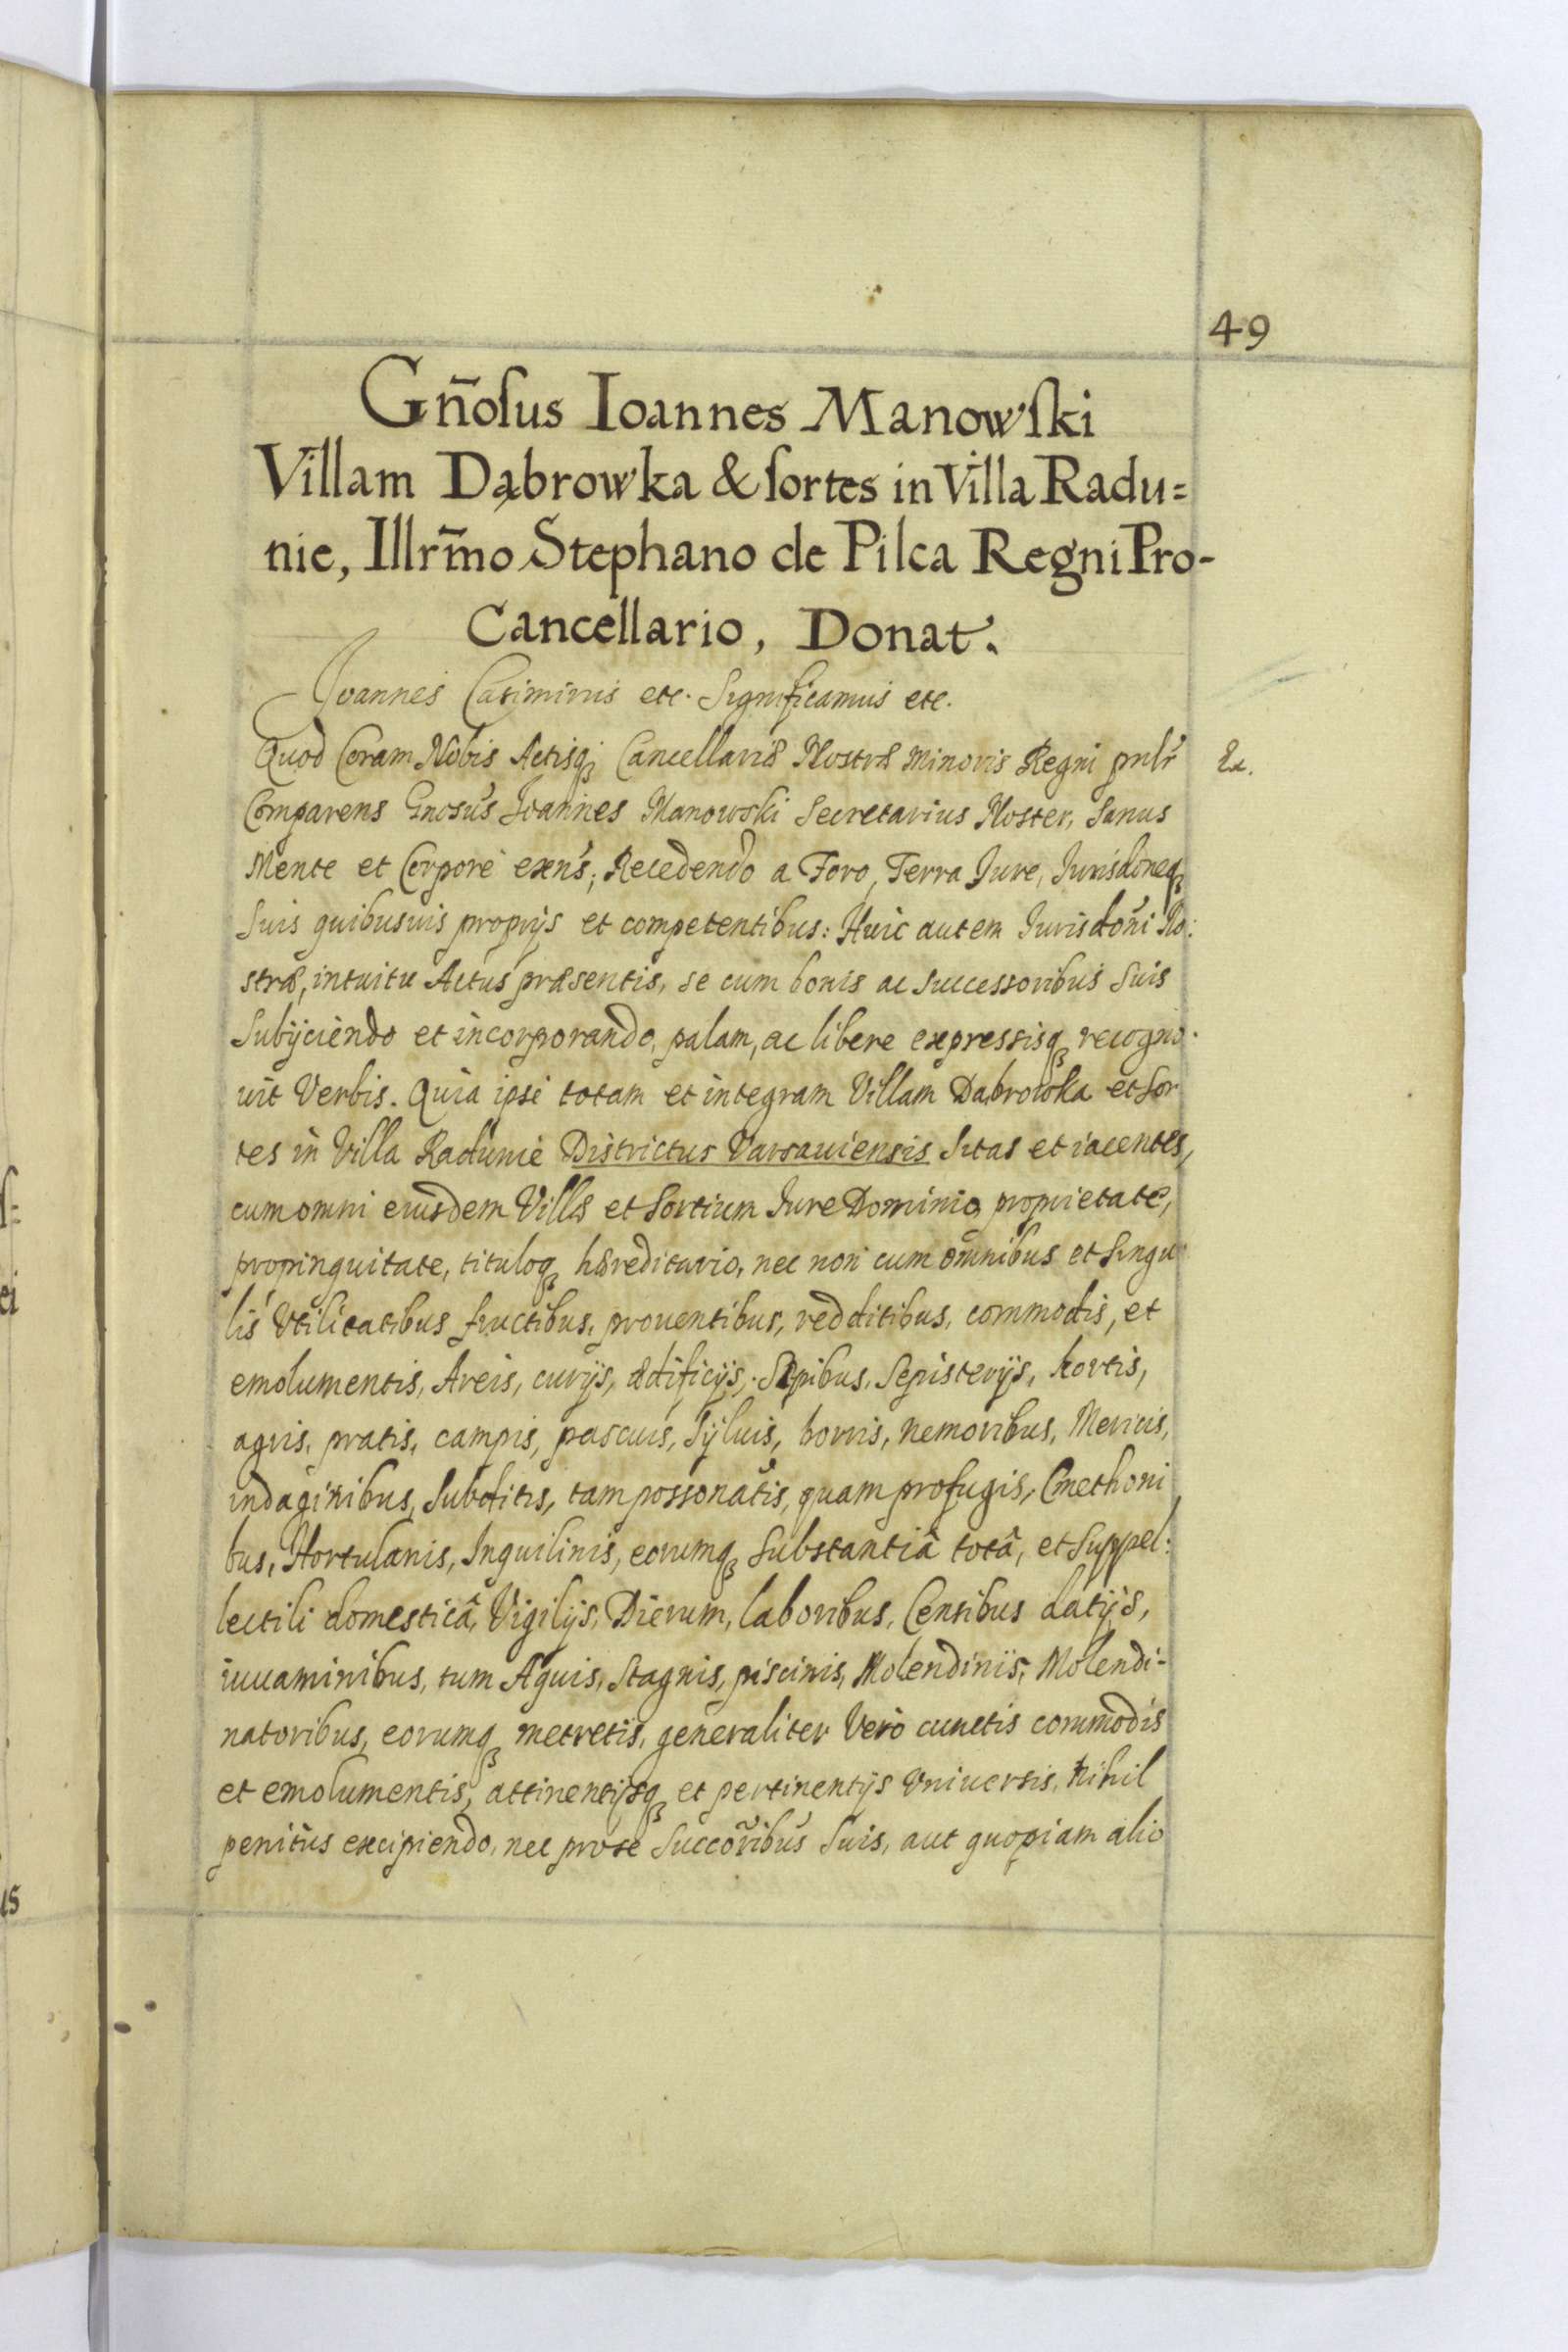 49
Gn̄oſus Ioannes Manowſki
Villam Dąbrowka & ſortes in Villa Radu=
nie, Illrm̄o Stephano de Pilca Regni Pro-
Cancellario, Donat.
Joannes Casimirus etc. Significamus etc.
Quod Coram Nobis Actisq; Cancellariæ Nostræ Minoris Regni pnlr̃
Ex.
Comparens Gnosus Joannes Manowski Secretarius Noster, Sanus
Mente et Corpore exn̄s, Recedendo a Foro, Terra Jure, Jurisdoneq;
Suis quibusuis proprijs et competentibus: Huic autem Jurisdoñi No:
stræ, intuitu Actus præsentis, se cum bonis ac Successoribus Suis
Subijciendo et incorporando, palam, ac libere expressisq; recogno-
uit Verbis. Quia ipse totam et integram Villam Dabrowka et Sor
tes in Villa Radunie Districtus Varsauiensis Sitas et iacentes,
cum omni eiusdem Villæ et Sortium Jure Dominio, proprietate,
propinquitate, tituloq; hæreditario, nec non cum omnibus et Singu
lis Vtilitatibus fructibus, prouentibus, redditibus, commodis, et
emolumentis, Areis, curijs, ædificijs, Sepibus, Sepisterijs, hortis,
agris, pratis, campis, pascuis, Syluis, borris, nemoribus, Mericis,
indaginibus, Subditis, tam possonatis, quam profugis, Cmethoni
bus, Hortulanis, Inquilinis, eorumq; Substantiâ totâ, et Suppel:
lectili domesticâ, Vigilijs, Dierum, laboribus, Censibus datijs,
iuuaminibus, tum Aquis, Stagnis, piscinis, Molendinis, Molendi-
natoribus, eorumq; metretis, generaliter Vero cunctis commodis
et emolumentis, attinentijsq; et pertinentijs Vniuersis, Nihil
penitus excipiendo, nec pro se Succoribus Suis, aut quopiam alio